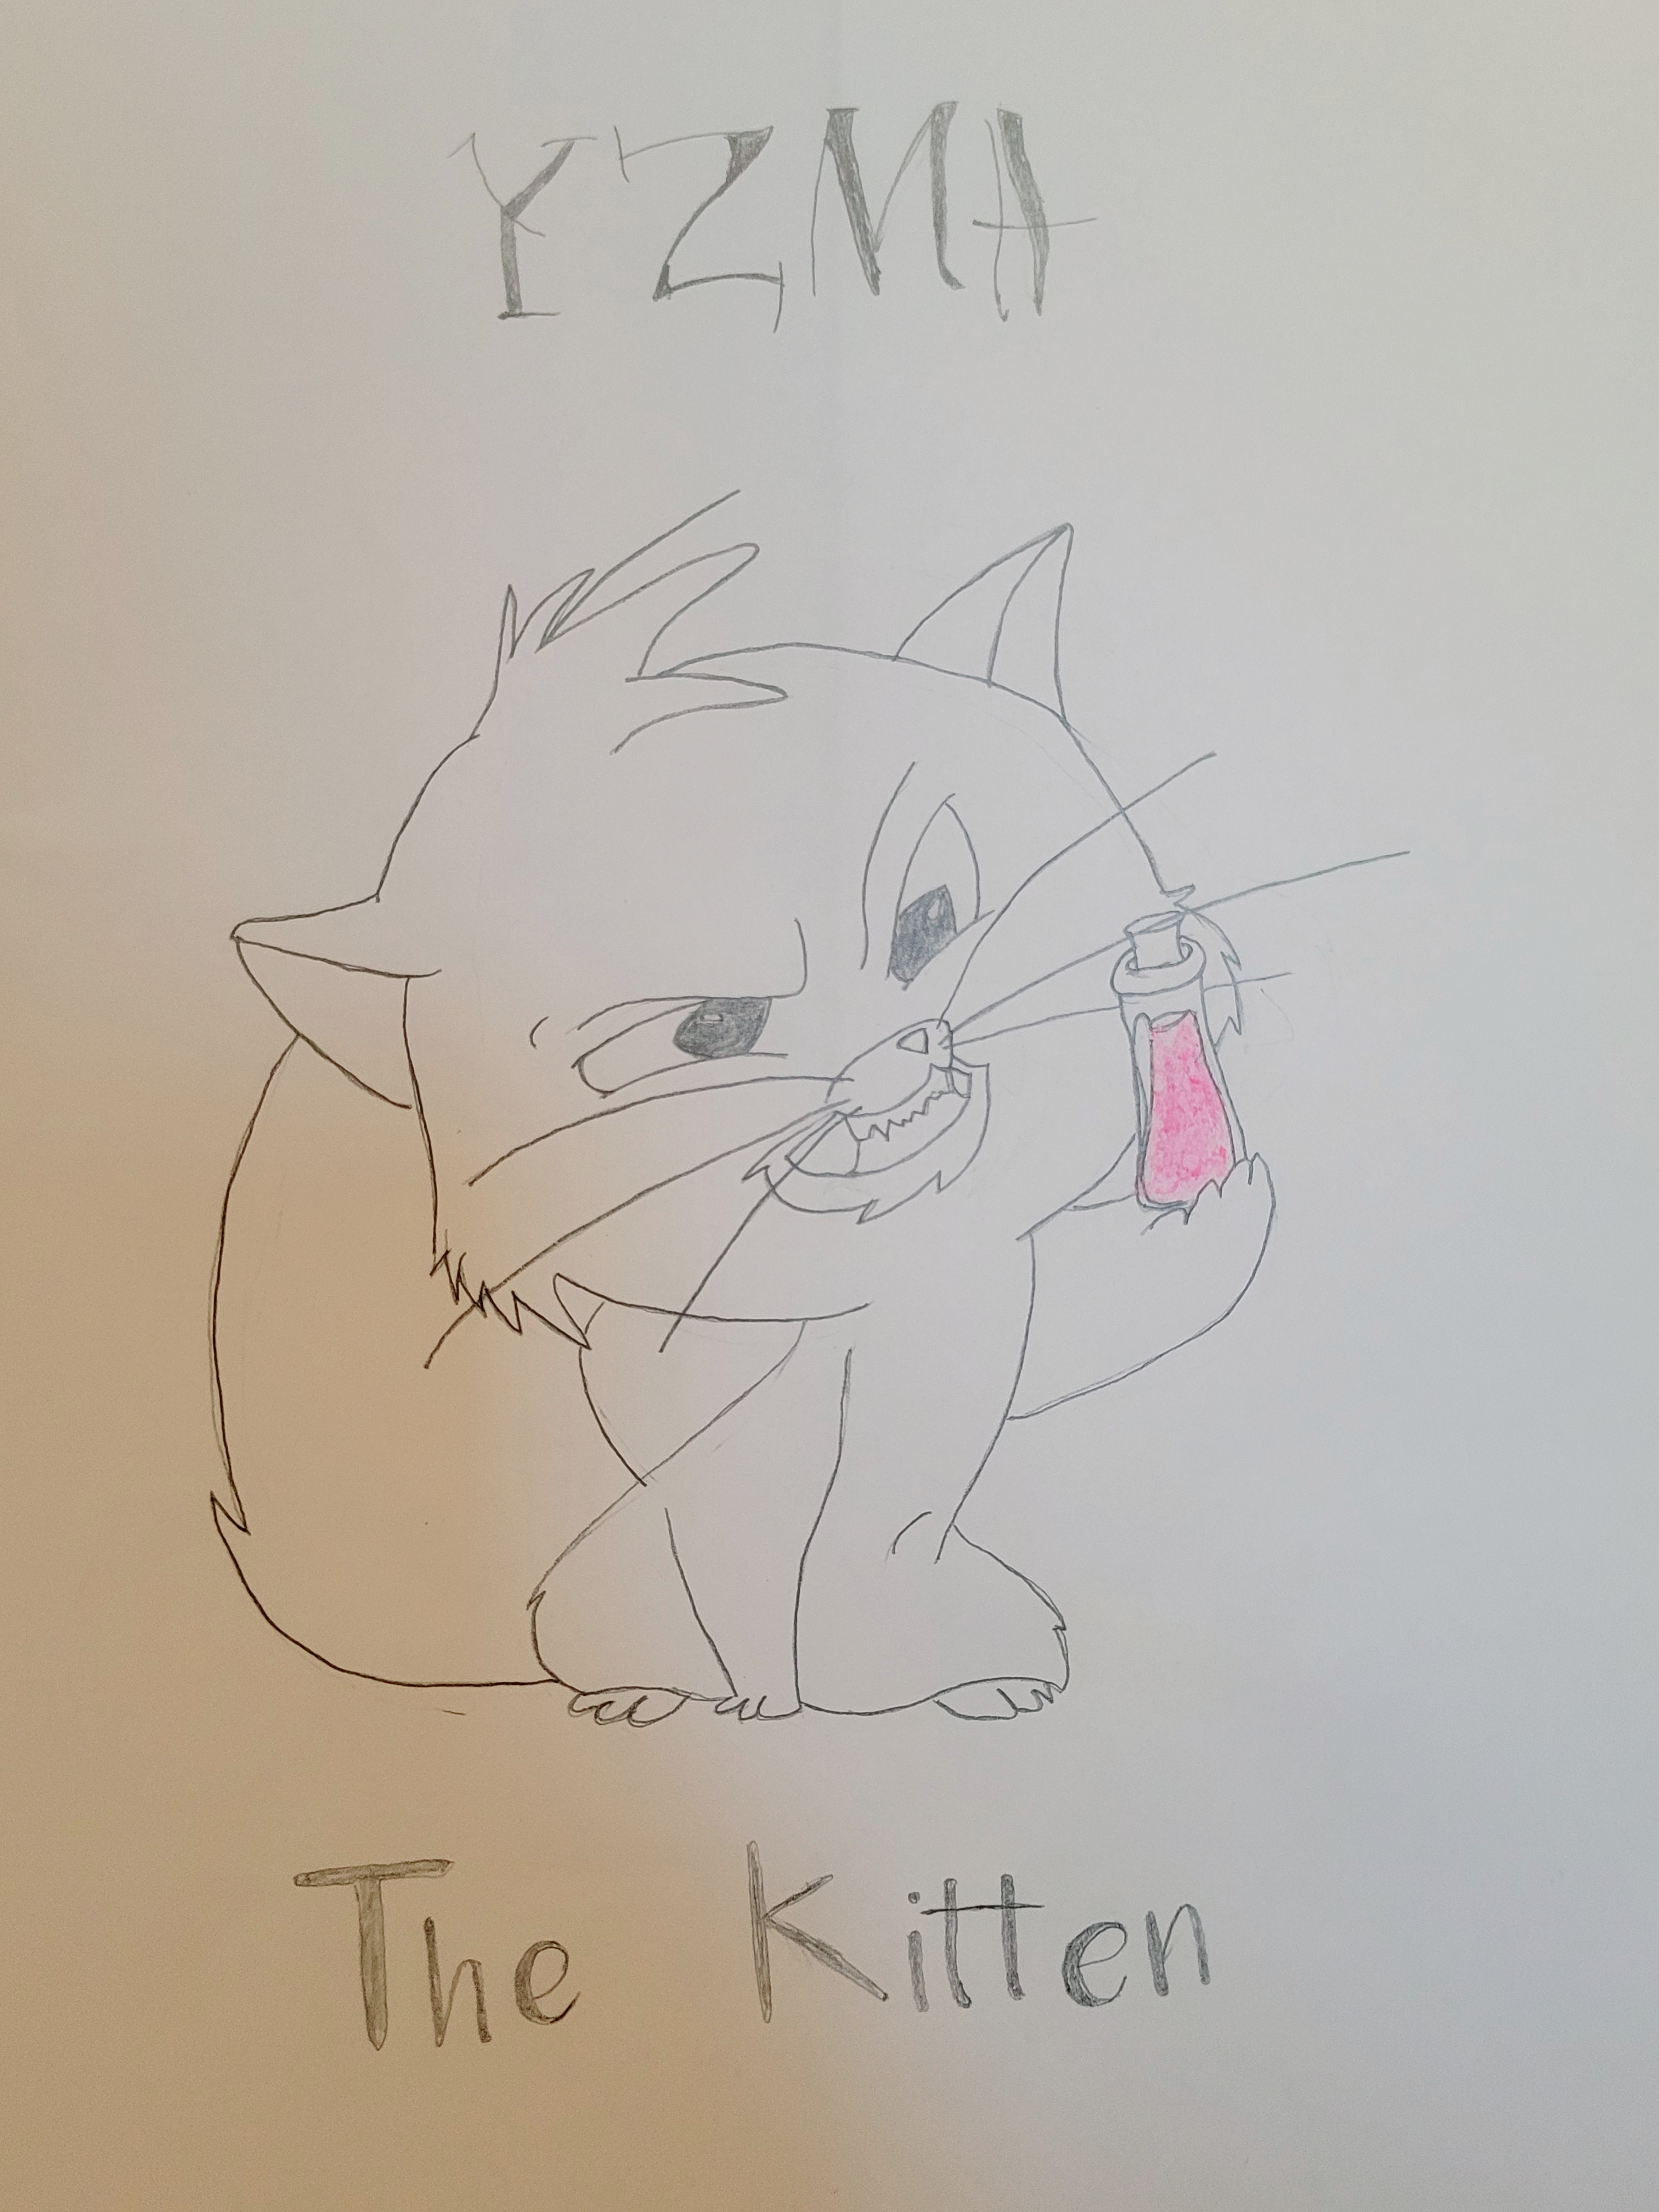 YZMA
The Kitten